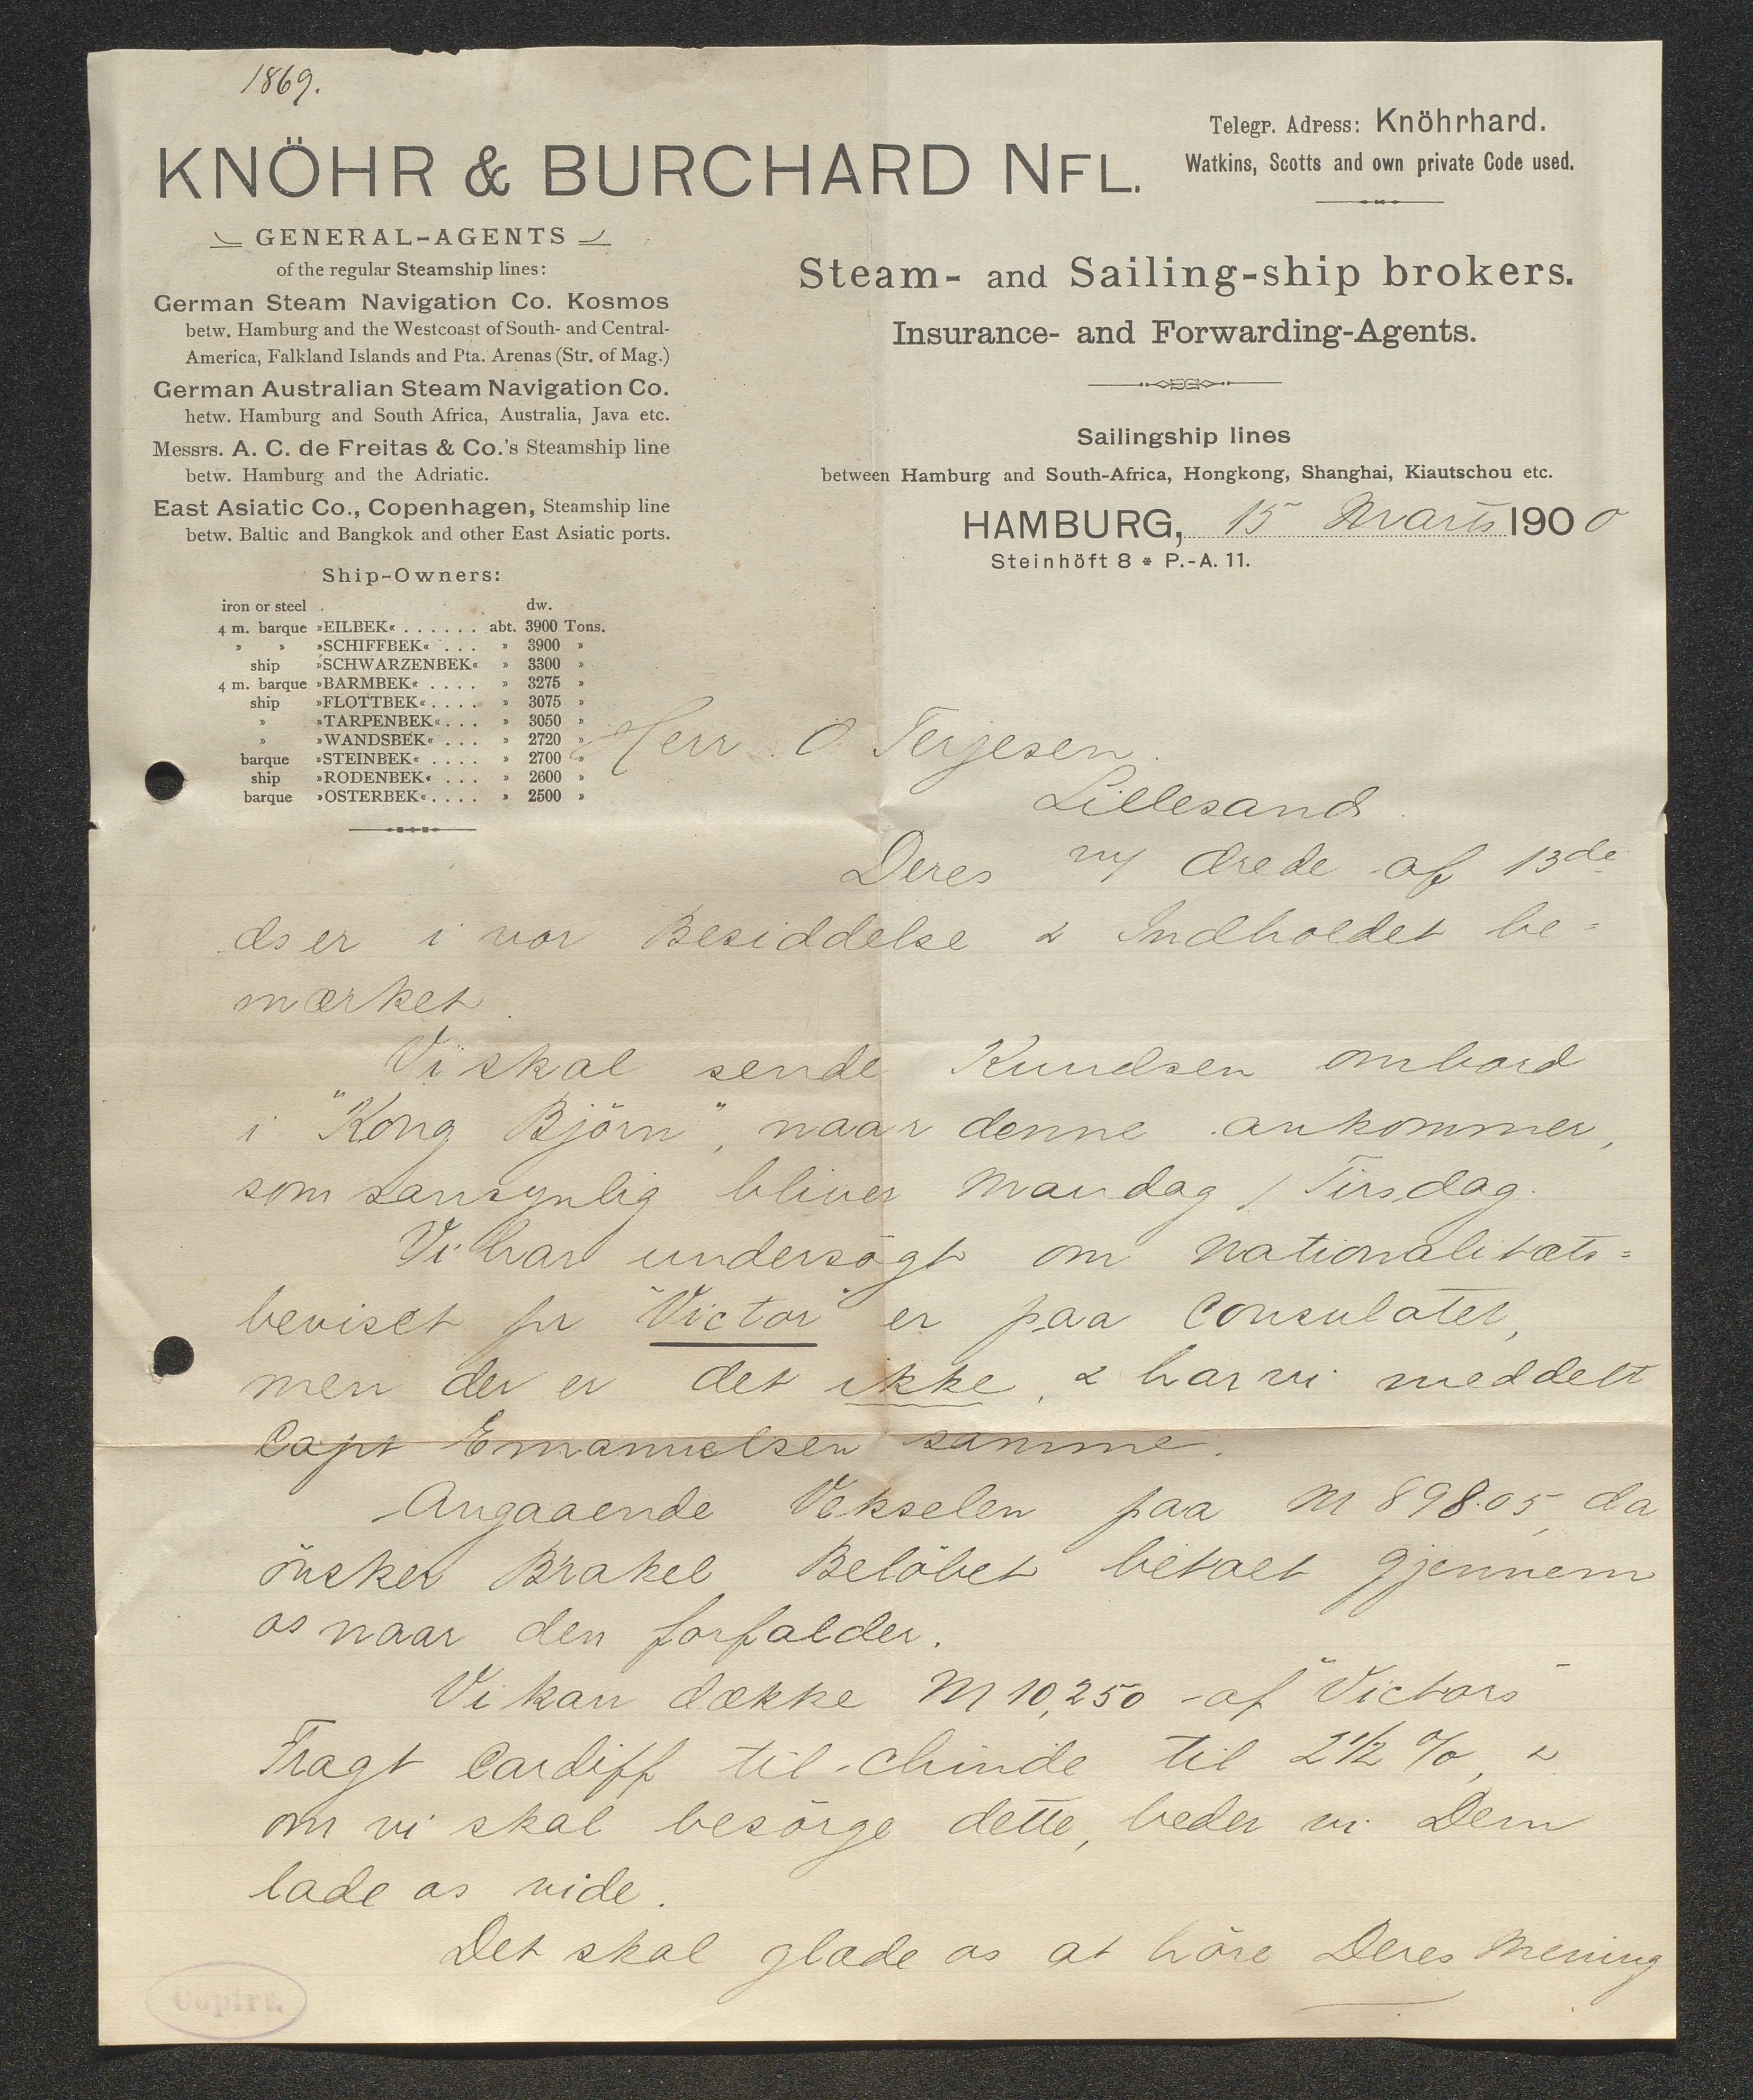 1869.
KNÖHR & BURCHARD NFL.
Telegr. Adress: Knöhrhard.
Watkins, Scotts and own private Code used.
GENERAL-AGENTS
of the regular Steamship lines:
German Steam Navigation Co. Kosmos
betw. Hamburg and the Westcoast of South- and Central-
America, Falkland Islands and Pta. Arenas (Str. of Mag.)
German Australian Steam Navigation Co.
hetw. Hamburg and South Africa, Australia, Java etc.
Messrs. A. C. de Freitas & Co.'s Steamship line
betw. Hamburg and the Adriatic.
East Asiatic Co., Copenhagen, Steamship line
betw. Baltic and Bangkok and other East Asiatic ports.
Ship-Owners:
iron or steel . dw.
4 m. barque »EILBEK« . . . . . . abt. 3900 Tons.
» » »SCHIFFBEK« . . . » 3900 »
ship »SCHWARZENBEK« » 3300 »
4 m. barque »BARMBEK« . . . . » 3275 »
ship »FLOTTBEK« . . . . » 3075 »
» »TARPENBEK« . . . » 3050 »
» »WANDSBEK« . . . » 2720 »
barque »STEINBEK« . . . . » 2700 »
ship »RODENBEK« . . . » 2600 »
barque »OSTERBEK« . . . . » 2500 »
Steam- and Sailing-ship brokers.
Insurance- and Forwarding-Agents.
Sailingship lines
between Hamburg and South-Africa, Hongkong, Shanghai, Kiautschou etc.
HAMBURG, 15 Marts 1900
Steinhöft 8 * P.-A. 11.
Herr O Terjesen
Lillesand.
Deres ærede af 13de
ds er i vor Besiddelse & Indholdet be=
mærket.
Vi skal sende Knudsen ombord
i "Kong Björn", naar denne ankommer,
som sansynlig bliver Mandag / Tirsdag.
Vi har undersögt om Nationalitæts=
beviset pr "Victor" er paa Consulatet,
men der er det ikke, & har vi meddelt
Capt Emanuelsen samme.
Angaaende Vekselen paa M 898.05, da
önsker Brakel Belöbet betalt gjennem
os naar den forfalder.
Vi kan dække M 10,250 af "Victors"
Fragt Cardiff til Chinde til 2 1/2 %, &
om vi skal besörge dette, beder vi Dem
lade os vide.
Det skal glæde os at höre Deres Mening
Copirt.